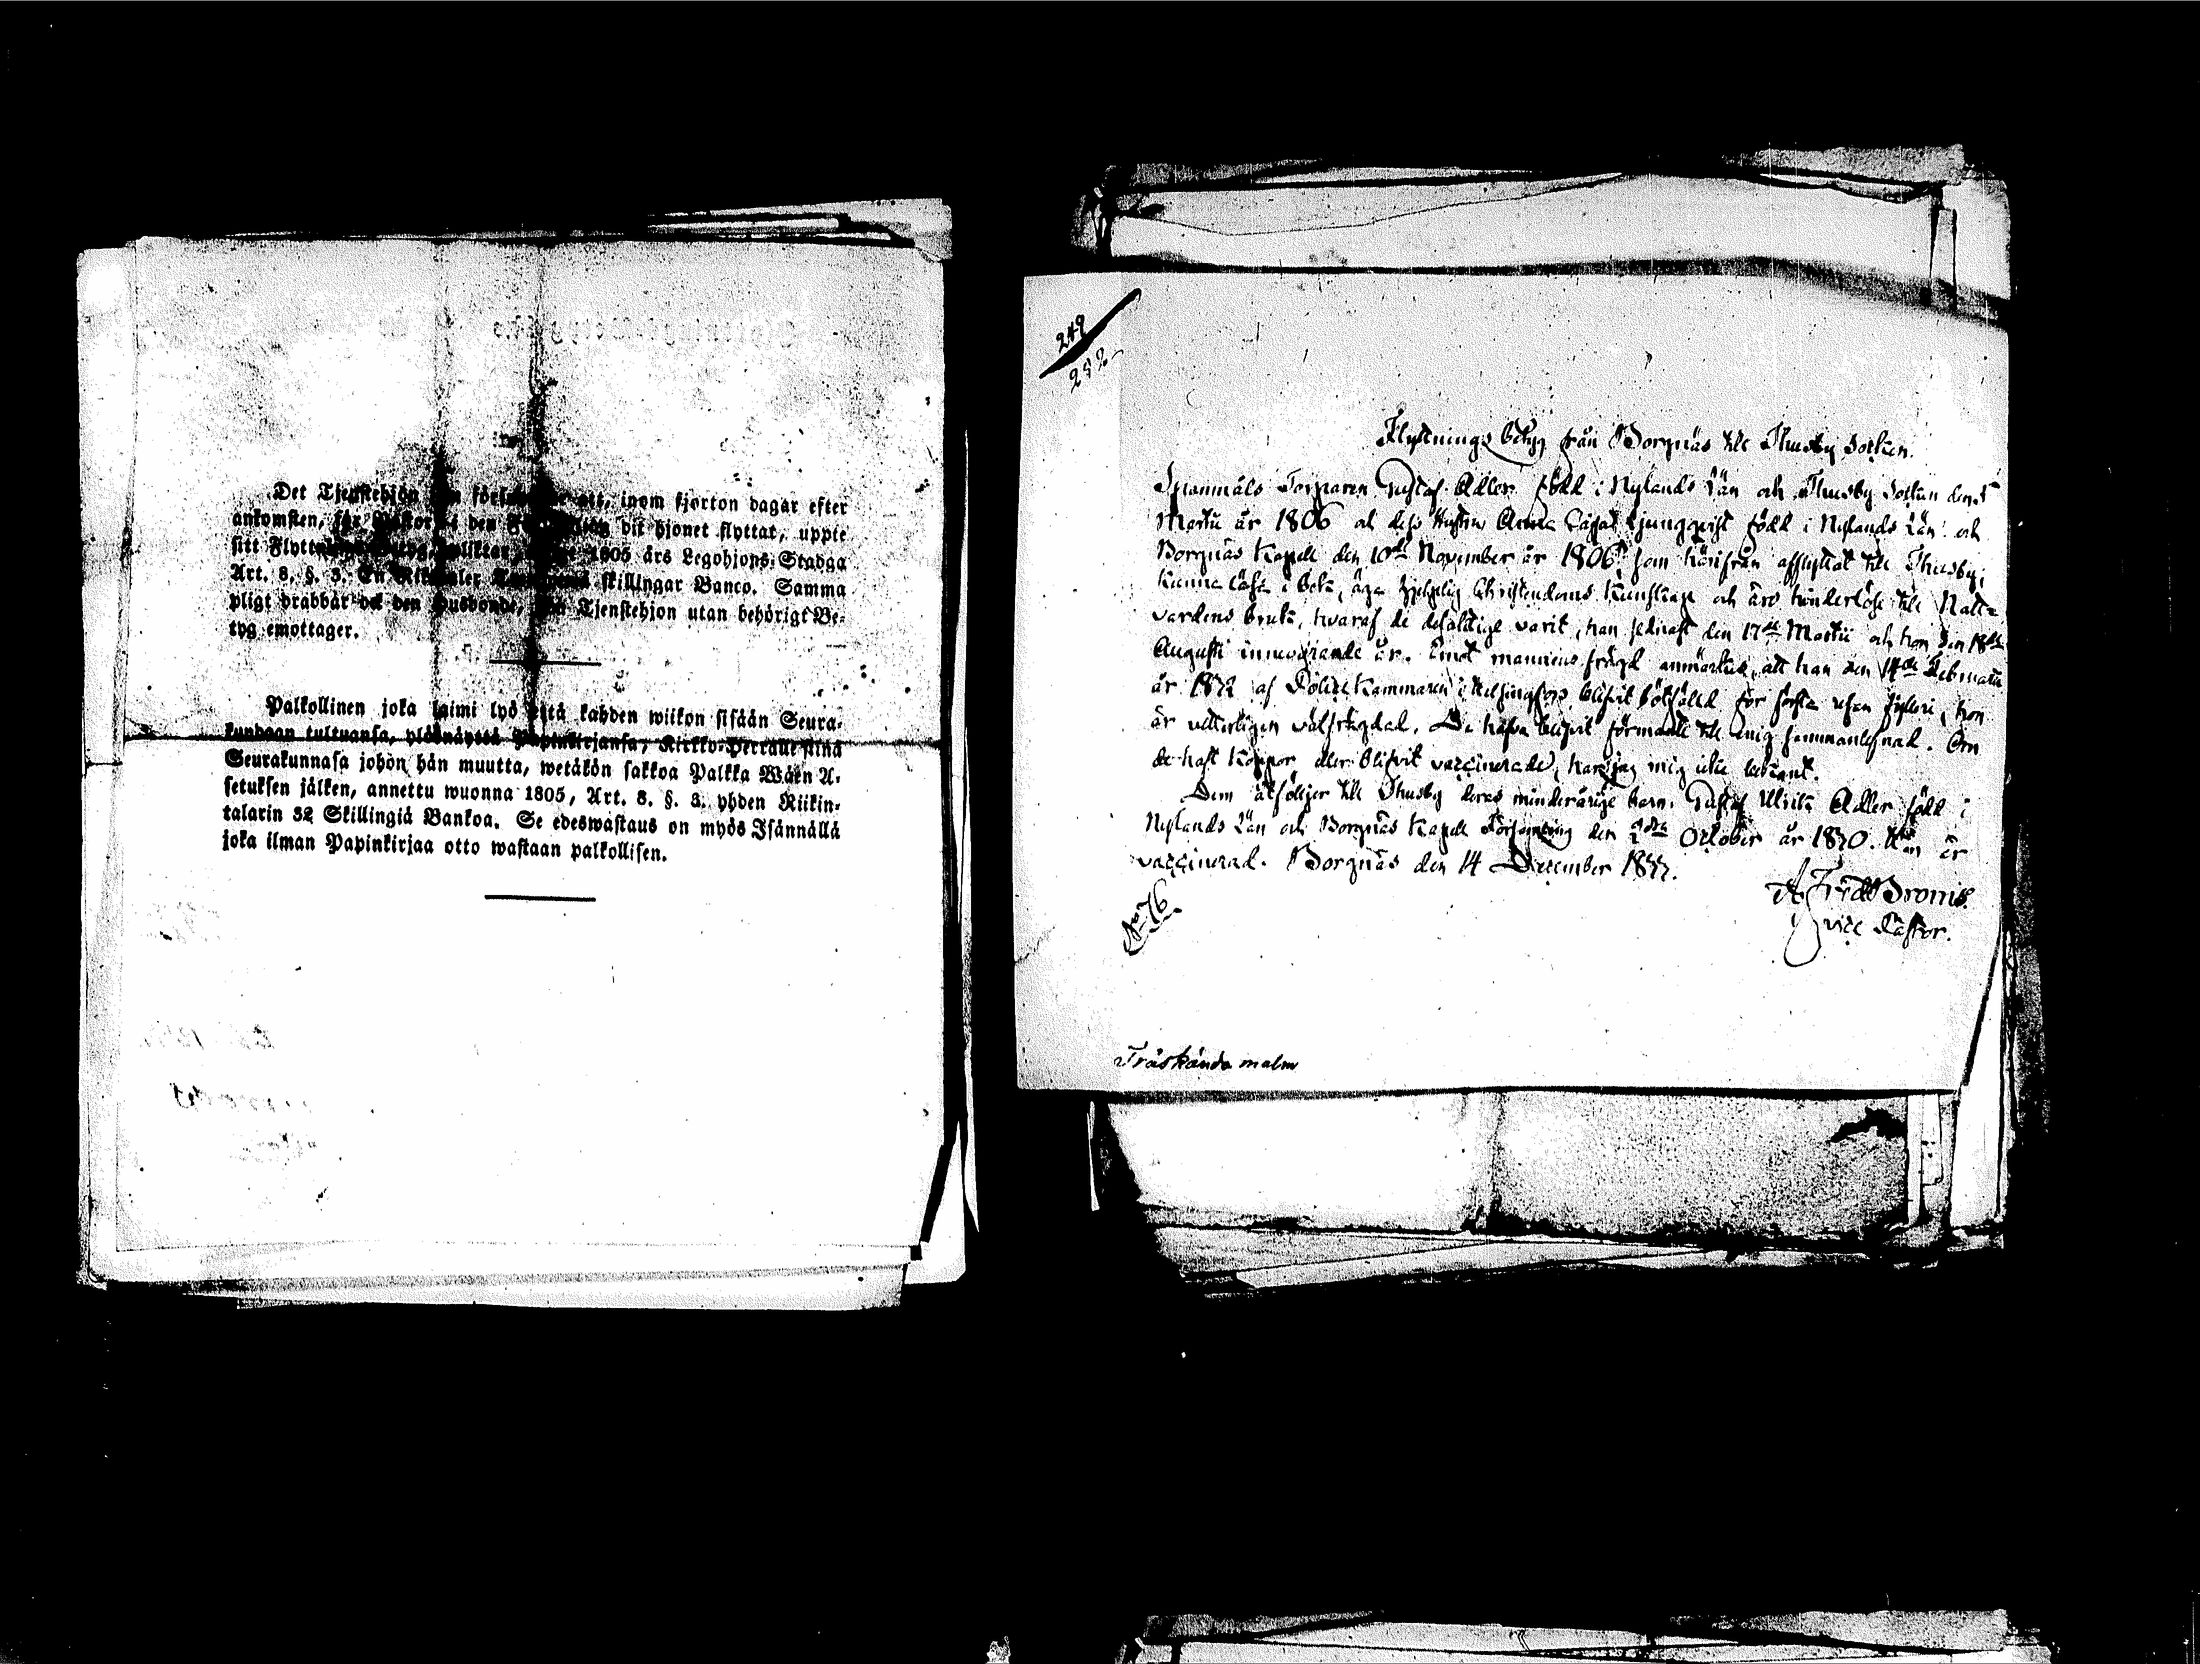 Det Tjenstehjon inom fjorton dagar efter
ankomsten, för Pastor i den dit hjonet flyttat, uppte
sitt 1805 års Legohjons-Stadga
Art. 8. §. 3. En skillingar Banco. Samma
pligt drabbar ock den Husbonde, Tjenstehjon utan behörigt Be-
tyg emottager.
Palkollinen joka laimi lyö että kahden wiikon sisään Seura-
kundaan tultuansa, ylösnäyttä Papinkirjansa, Kirkko-Herralle siinä
Seurakunnasa johon hän muutta, wetäkön sakkoa Palkka Wäen A-
setuksen jälken, annettu wuonna 1805, Art. 8. §. 3. yhden Riikin-
talarin 32 Skillingiä Bankoa. Se edeswastaus on myös Isännällä
joka ilman Papinkirjaa otto wastaan palkollisen.
249
252
Flyttnings betyg från Borgnäs till Thusby Socken.
Torparen Gustaf Adler född i Nylands Län och Thusby Socken den
Martii år 1806 och dess Hustru Anna Ljungqvist född i Nylands Län och
Borgnäs Kapell den 10de November år 1806, som härifrån afflyttat till Thusby;
kunna läsa i bok, äga Christendoms kunskap och äro hinderlöse till Natt-
vardens bruk, hvaraf de delaktige varit, han sednast den 17de Martii och hon den 18de
Augusti innevarande år. Emot mannens frägd anmärkes, att han den 14de Februarii
år af Police Kammaren i Helsingfors blifvit bötfälld för första resan fylleri, hon
är vetterligen välfrägdad. De hafva blifvit förmante till enig sammanlefnad. Om
de haft koppor eller blifvit vaccinerade, har jag mig icke bekant.
Dem åtföljer till Thusby deras minderårige barn. Gustaf Ulrik Adler född i
Nylands Län och Borgnäs Kapell Församling den October år Han är
vaccinerad. Borgnäs den 14 December
vice Pastor.
No 76.
Träskända malm